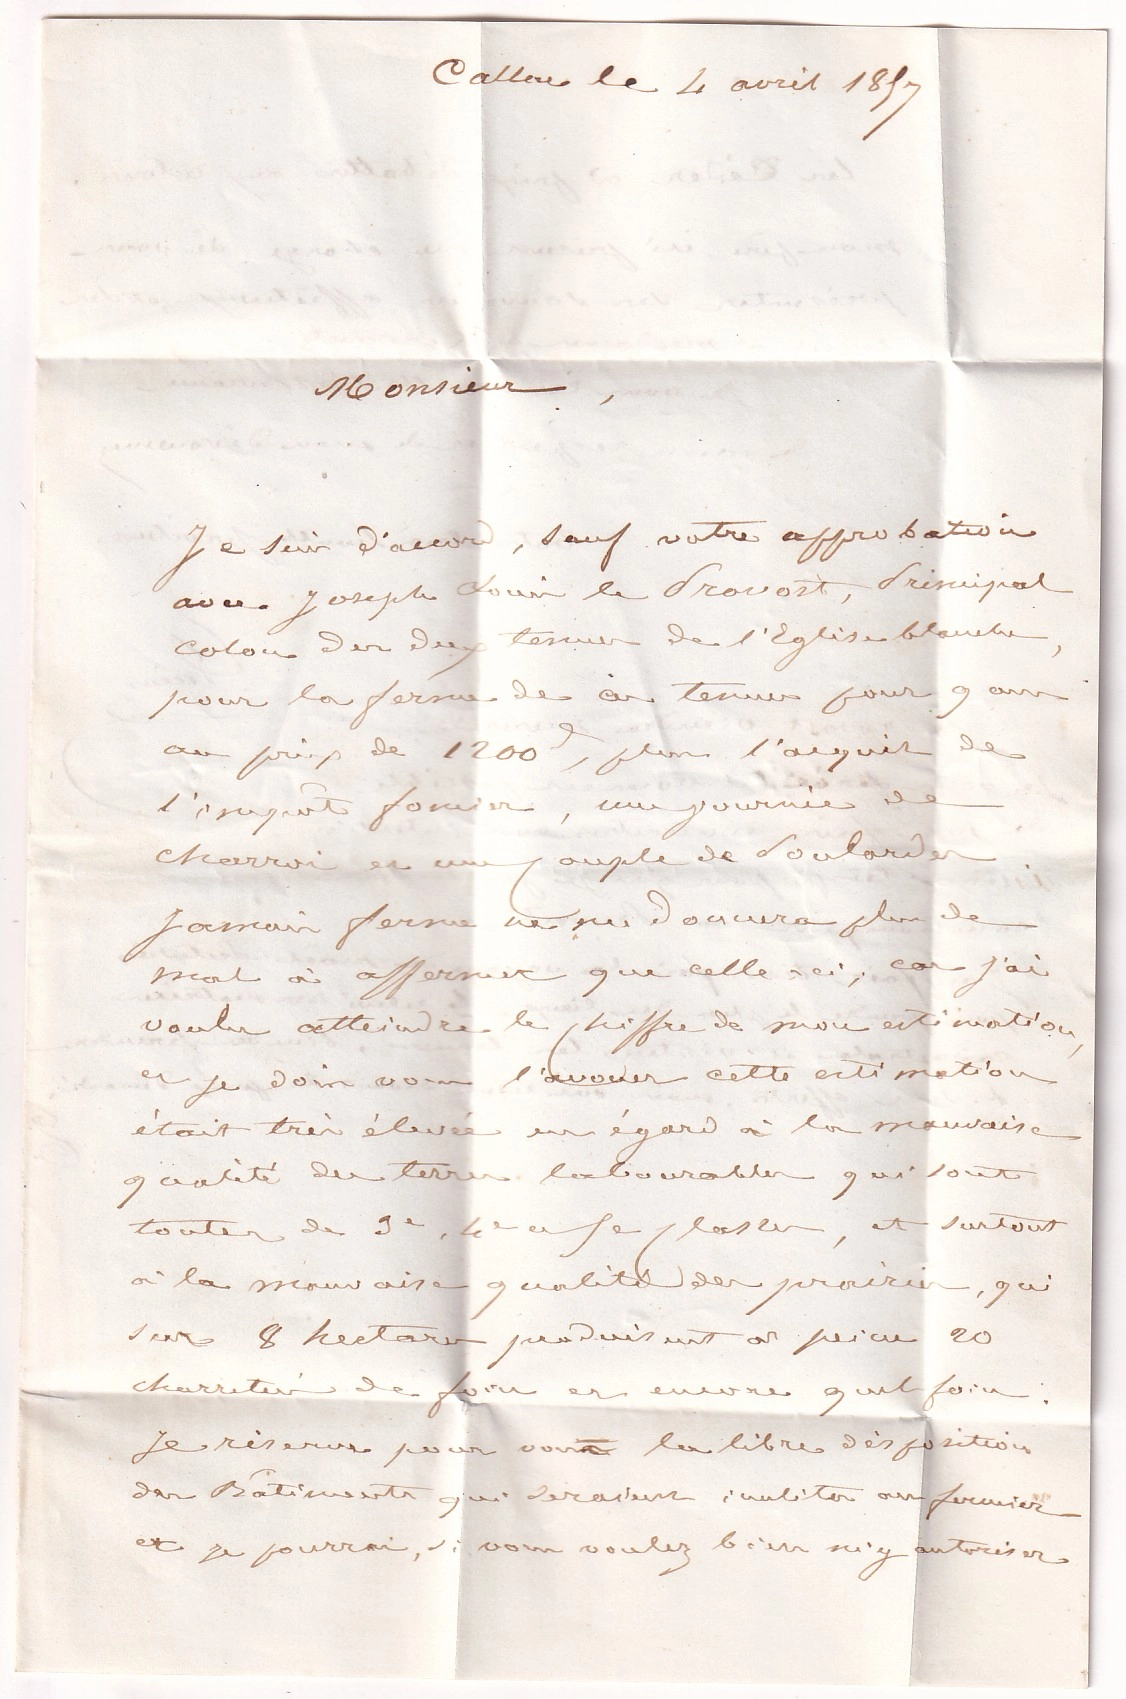 Callac le 4 avril 1857
Monsieur,
Je suis d'accord, sauf votre approbation
avec Joseph Louis le Provost, Principal
colon des deux tenues de l'Eglise blanche,
pour la ferme de ces tenues pour 9 ans
au prix de 1200f, plus l'acquit de
l'impôt foncier, une journée de
charroi et une couple de Poulardes
Jamais ferme ne me donnera plus de
mal à affermer que celle-ci, car j'ai
voulu atteindre le chiffre de mon estimation,
et je dois vous l'avouer cette estimation
était très élevée eu égard à la mauvaise
qualité des terres labourables qui sont
toutes de 3e, 4e et 5e classes, et surtout
à la mauvaise qualité des prairies, qui
sur 8 hectares produisent à peine 20
charretées de foin et encore quel foin.
Je réserve pour vous la libre disposition
des Bâtiments qui seraient inutiles au fermier
et je pourrai, si vous voulez bien m'y autoriser